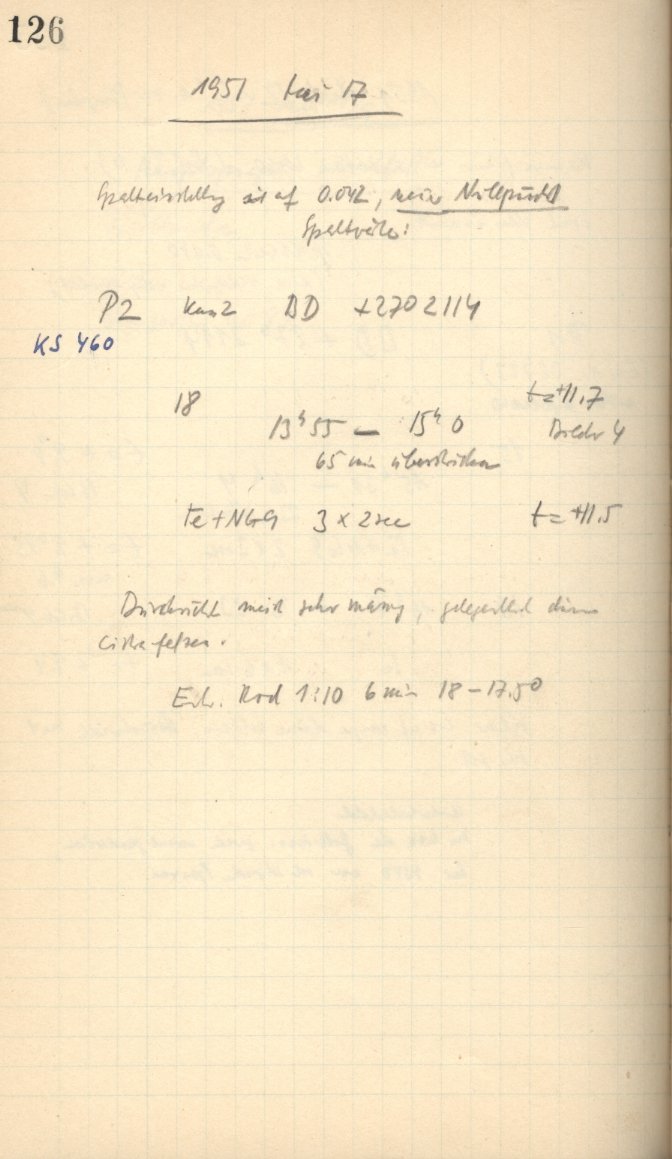 126
1951 Mai 17
Spalteinstellung ist auf 0.042, neuer Nullpunkt
P2 Kam2 BD +2702114
KS 460
18 t=+11.7
13h 55 — 15h 0 Bilder 4
65 min überstrichen
Fe+NG9 3 x 2sec t=+11.5
Durchsicht meist sehr mässig, gelegentlich dünne
Cirrusfetzen.
Entw. Rod 1:10 6 min 18-17.5°